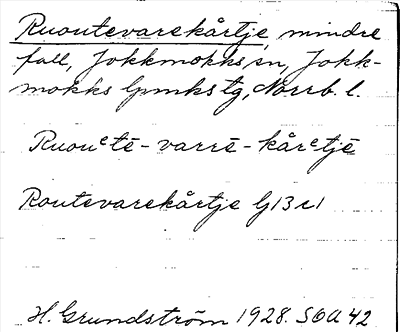 Ruoutevarekårtje, mindre
fall, Jokkmokks sn, Jokk-
mokks lpmks tg, Norrb. l.
Ruouᵉtē-varrē-kårᵉtjē
Routevarekårtje G13 c1
H. Grundström 1928. SOU 42